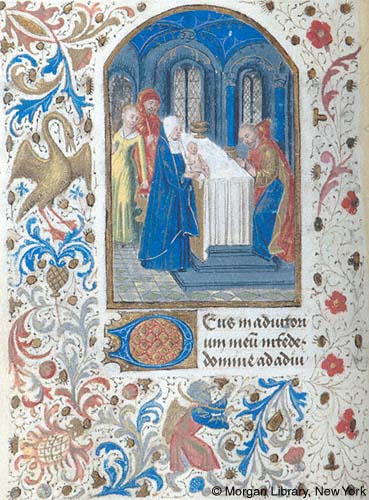 DEus in adiutori
um meū intēde
domine ad adiu
© Morgan Library, New York